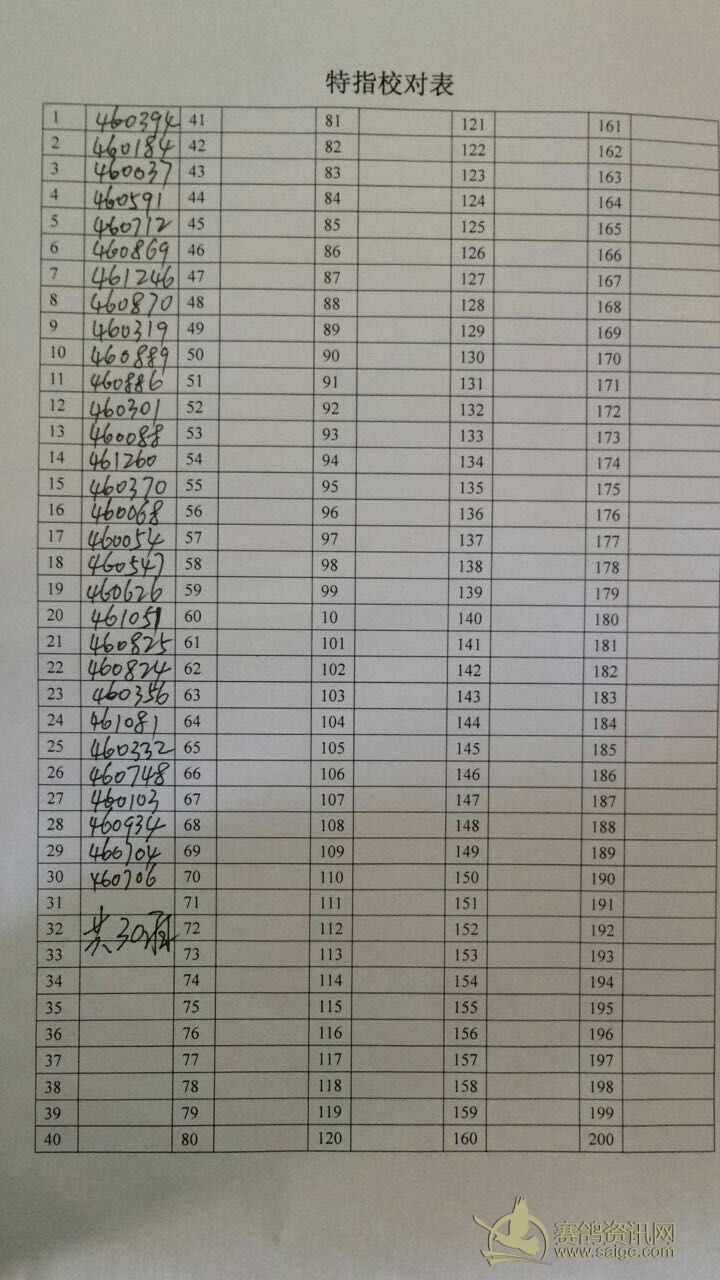 特指校对表
1 460394 41 81 121 161
2 460184 42 82 122 162
3 460037 43 83 123 163
4 460591 44 84 124 164
5 460712 45 85 125 165
6 460869 46 86 126 166
7 461246 47 87 127 167
8 460870 48 88 128 168
9 460319 49 89 129 169
10 460889 50 90 130 170
11 460886 51 91 131 171
12 460301 52 92 132 172
13 460088 53 93 133 173
14 461260 54 94 134 174
15 460370 55 95 135 175
16 460068 56 96 136 176
17 460054 57 97 137 177
18 460547 58 98 138 178
19 460626 59 99 139 179
20 461051 60 10 140 180
21 460825 61 101 141 181
22 460824 62 102 142 182
23 460356 63 103 143 183
24 461081 64 104 144 184
25 460332 65 105 145 185
26 460748 66 106 146 186
27 460103 67 107 147 187
28 460934 68 108 148 188
29 460704 69 109 149 189
30 460706 70 110 150 190
31 71 111 151 191
32 共30 72 112 152 192
33 73 113 153 193
34 74 114 154 194
35 75 115 155 195
36 76 116 156 196
37 77 117 157 197
38 78 118 158 198
39 79 119 159 199
40 80 120 160 200
赛鸽资讯网
www.saige.com